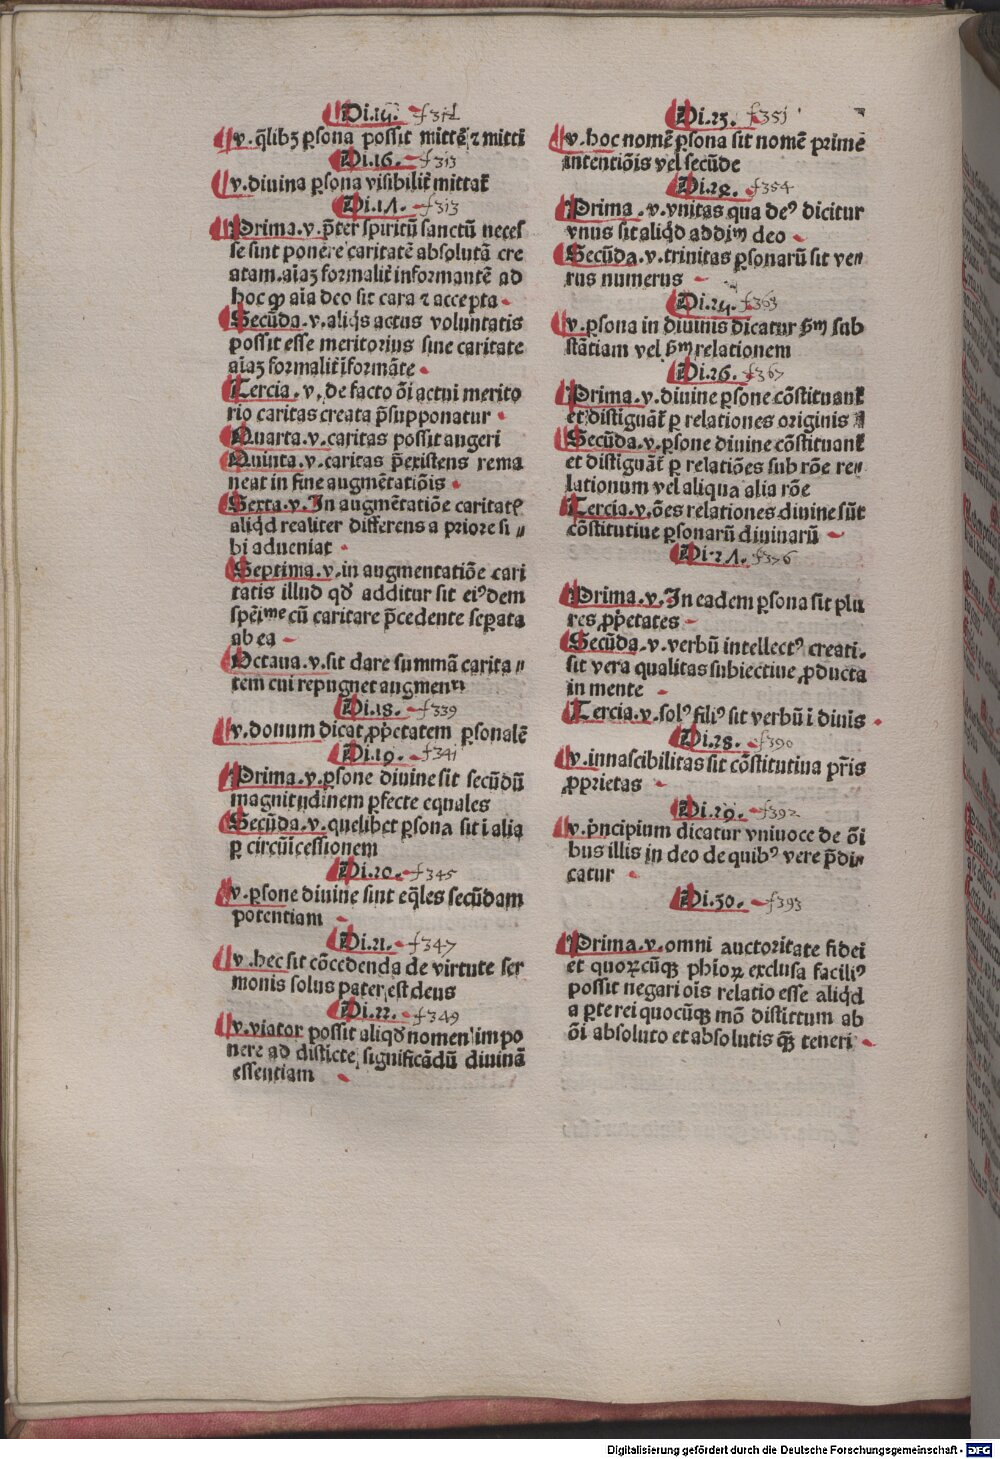 Di.15. f311
v.q̃libꝫ ꝑsona possit mittē ⁊ mitti
Di.16. f313
v.diuina ꝑsona visibilit̃ mittat̃
Di.17. f313
Prima.v.p̃ter spiritū sanctū neces
se sint ponere caritatē absolutā cre
atam.aĩaꝫ formalit̃ informantē ad
hoc ꝙ aĩa deo sit cara ⁊ accepta
Secūda.v.aliq̇s actus voluntatis
possit esse meritorius sine caritate
aĩaꝫ formalit̃ ĩformāte
Tercia.v.de facto õi actui merito
rio caritas creata p̃supponatur
Quarta.v.caritas possit augeri
Quinta.v.caritas p̃existens rema
neat in fine augmētatiõis
Sexta.v.In augmētatiõe caritatꝭ
aliq̇d realiter differens a priore si〃
bi adueniat
Septima.v.in augmentatiõe cari
tatis illud qd̓ additur sit eiꝰdem
spẽiᵐᵉ cū caritate p̃cedente seꝑata
ab ea
Octaua.v.sit dare summā carita〃
tem cui repugnet augmenti
Di.18. f339
v.donum dicat ꝓp̃etatem ꝑsonalē
Di.19. f341
Prima.v.ꝑsone diuine sit secūdū
magnitudinem ꝑfecte equales
Secūda.v.quelibet ꝑsona sit ĩ alia
ꝑ circūĩcessionem
Di.20. f345
v.ꝑsone diuine sint eq̃les secūdam
potentiam
Di.21. f347
v.hec sit cõcedenda de virtute ser
monis solus pater est deus
Di.22. f349
v.viator possit aliqd̓ nomen impo
nere ad disticte significādū diuinā
essentiam
Di.23. f351
v.hoc nomē ꝑsona sit nomē prime
intentiõis vel secūde
Di.24. f354
Prima.v.vnitas qua deꝰ dicitur
vnus sit aliq̇d addiᵐ deo
Secūda.v.trinitas ꝑsonarū sit ve〃
rus numerus
Di.25. f363
v.ꝑsona in diuinis dicatur ẜm sub
stātiam vel ẜm relationem
Di.26. f367
Prima.v.diuine ꝑsone cõstituant̃
et distiguāt̃ ꝑ relationes originis
Secūda.v.ꝑsone diuine cõstituant̃
et distiguāt̃ ꝑ relatiões sub rõe re〃
lationum vel aliqua alia rõe
Tercia.v.ões relationes diuine sūt
cõstitutiue ꝑsonarū diuinarū
Di.27. f376
Prima.v.In eadem ꝑsona sit plu
res ꝓp̃etates
Secūda.v.verbū intellectꝰ creati.
sit vera qualitas subiectiue ꝓducta
in mente
Tercia.v.solꝰ filiꝰ sit verbū ĩ diuis
Di.28. f390
v.innascibilitas sit cõstitutiua pr̃is
ꝓprietas
Di.29. f392
v.pͥncipium dicatur vniuoce de õi
bus illis in deo de quibꝰ vere p̃di〃
catur
Di.30. f393
Prima.v.omni auctoritate fidei
et quoꝝcūqꝫ phĩoꝝ exclusa faciliꝰ
possit negari oĩs relatio esse aliq̇d
a ꝑte rei quocūqꝫ mõ distittum ab
õi absoluto et absolutis qͣꝫ teneri
Digitalisierung gefördert durch die Deutsche Forschungsgemeinschaft - DFG